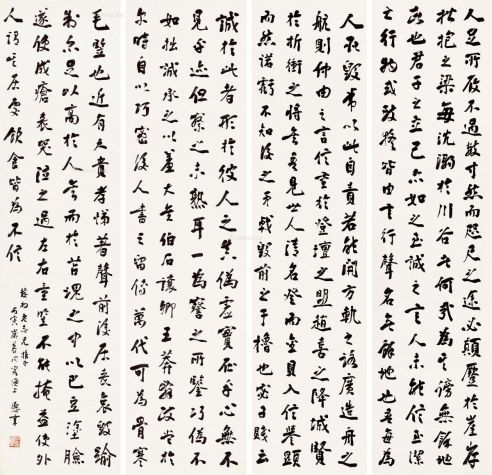 人足所履不過數寸而咫尺之途必顛蹷於崖岸
拱抱之梁每沉溺於川谷者何哉為其旁無餘地
故也君子之立己亦如之至誠之言人未能信至潔
之行物或致疑皆由言行聲名無餘地也吾每為
人所毀常以此自責若能開方軌之路廣造舟之
航則仲由之言信重於登壇之盟趙熹之降城賢
於折衝之將矣吾見世人清名登而金貝入信譽顯
而然諾虧不知後之矛戟毀前之干櫓也宓子賤云
誠於此者形於彼人之真偽虛實在乎心無不
見乎迹但察之未熟耳一為察之所鑒巧偽不
如拙誠承之以羞大矣伯石讓卿王莽辭政當於
尔時自以巧密後人書之留傳萬代可為骨寒
毛豎也近有大貴孝悌著聲前後居喪哀毀踰
制亦足以高於人矣而於苫塊之中以巴豆塗臉
遂使成瘡表哭泣之過左右童豎不能掩益使外
人謂其居處飲食皆為不信
丙寅歲暮客海上